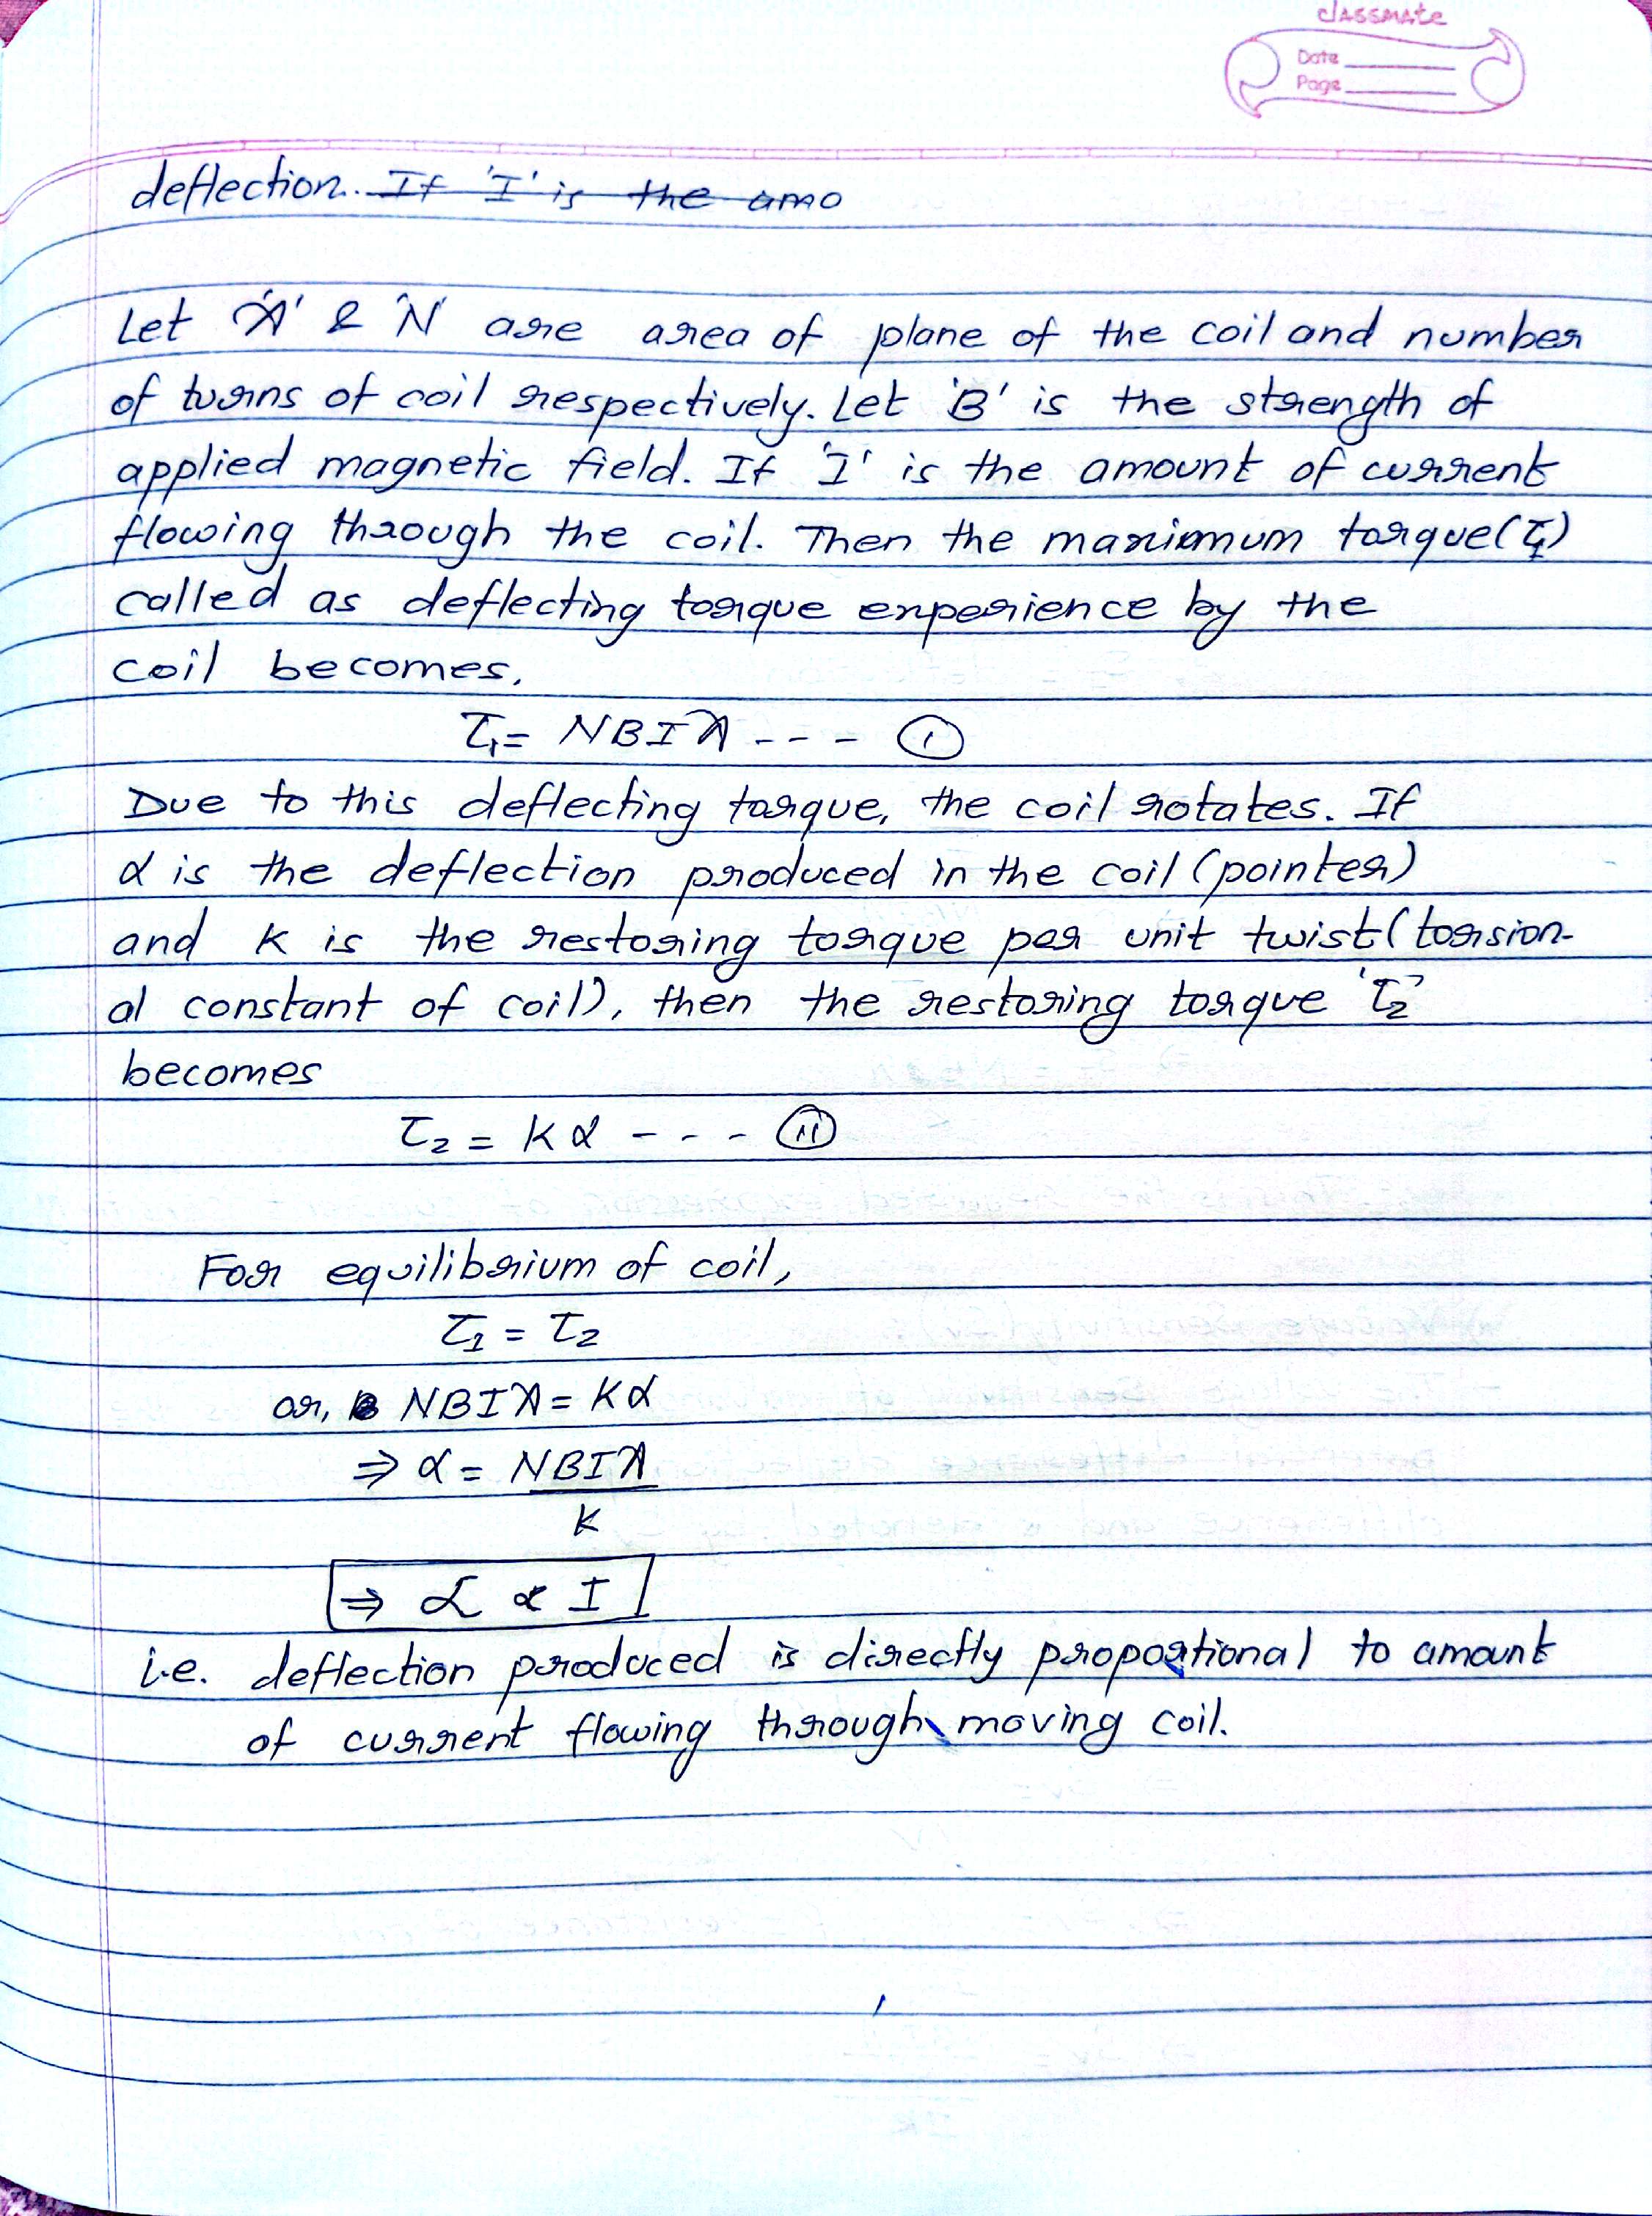 classmate
Date
Page
deflection. If 'I' is the amo
Let 'A' & 'N' are area of plane of the coil and number
of turns of coil respectively. Let 'B' is the strength of
applied magnetic field. If 'I' is the amount of current
flowing through the coil. Then the maximum torque(τ₁)
called as deflecting torque experience by the
coil becomes,
τ₁ = NBIA --- (i)
Due to this deflecting torque, the coil rotates. If
α is the deflection produced in the coil (pointer)
and K is the restoring torque per unit twist (torsion-
al constant of coil), then the restoring torque 'τ₂'
becomes
τ₂ = Kα --- (ii)
For equilibrium of coil,
τ₁ = τ₂
or, NBIA = Kα
⇒ α = NBIA
K
⇒ α ∝ I
i.e. deflection produced is directly proportional to amount
of current flowing through moving coil.